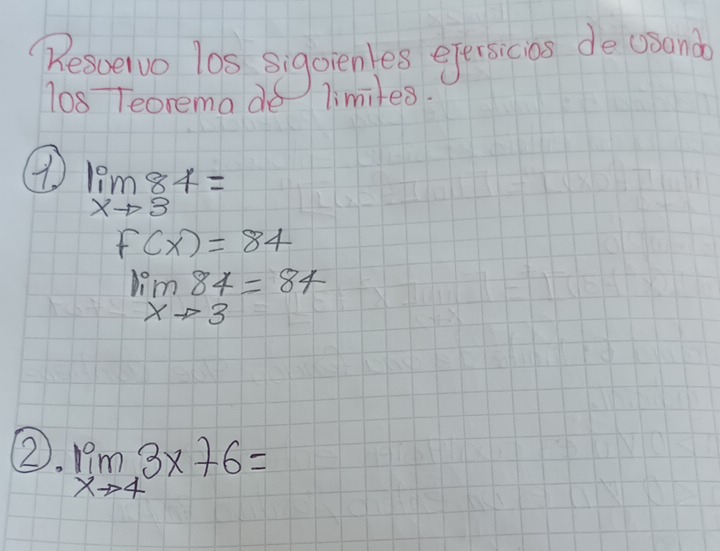 Resuelvo los siguientes ejersicios de usando
los Teorema de limites.
1. lim 84 =
x→3
F(x) = 84
lim 84 = 84
x→3
2. lim 3x+6=
x→4